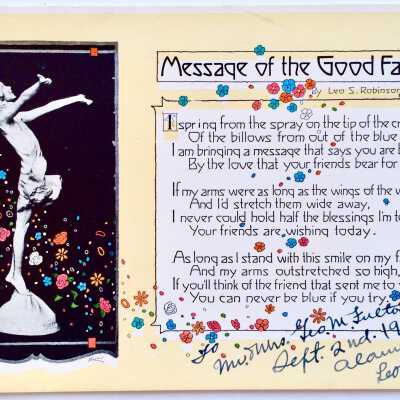 Message of the Good Fa
by Leo S. Robinson
I spring from the spray on the tip of the cr
Of the billows from out of the blue
I am bringing a message that says you are b
By the love that your friends bear for
If my arms were as long as the wings of the w
And I'd stretch them wide away,
I never could hold half the blessings I'm to
Your friends are wishing today.
As long as I stand with this smile on my fa
And my arms outstretched so high,
If you'll think of the friend that sent me to y
You can never be blue if you try.
To Mr. & Mrs. Geo. M.
Sept. 2nd. 19
Leo